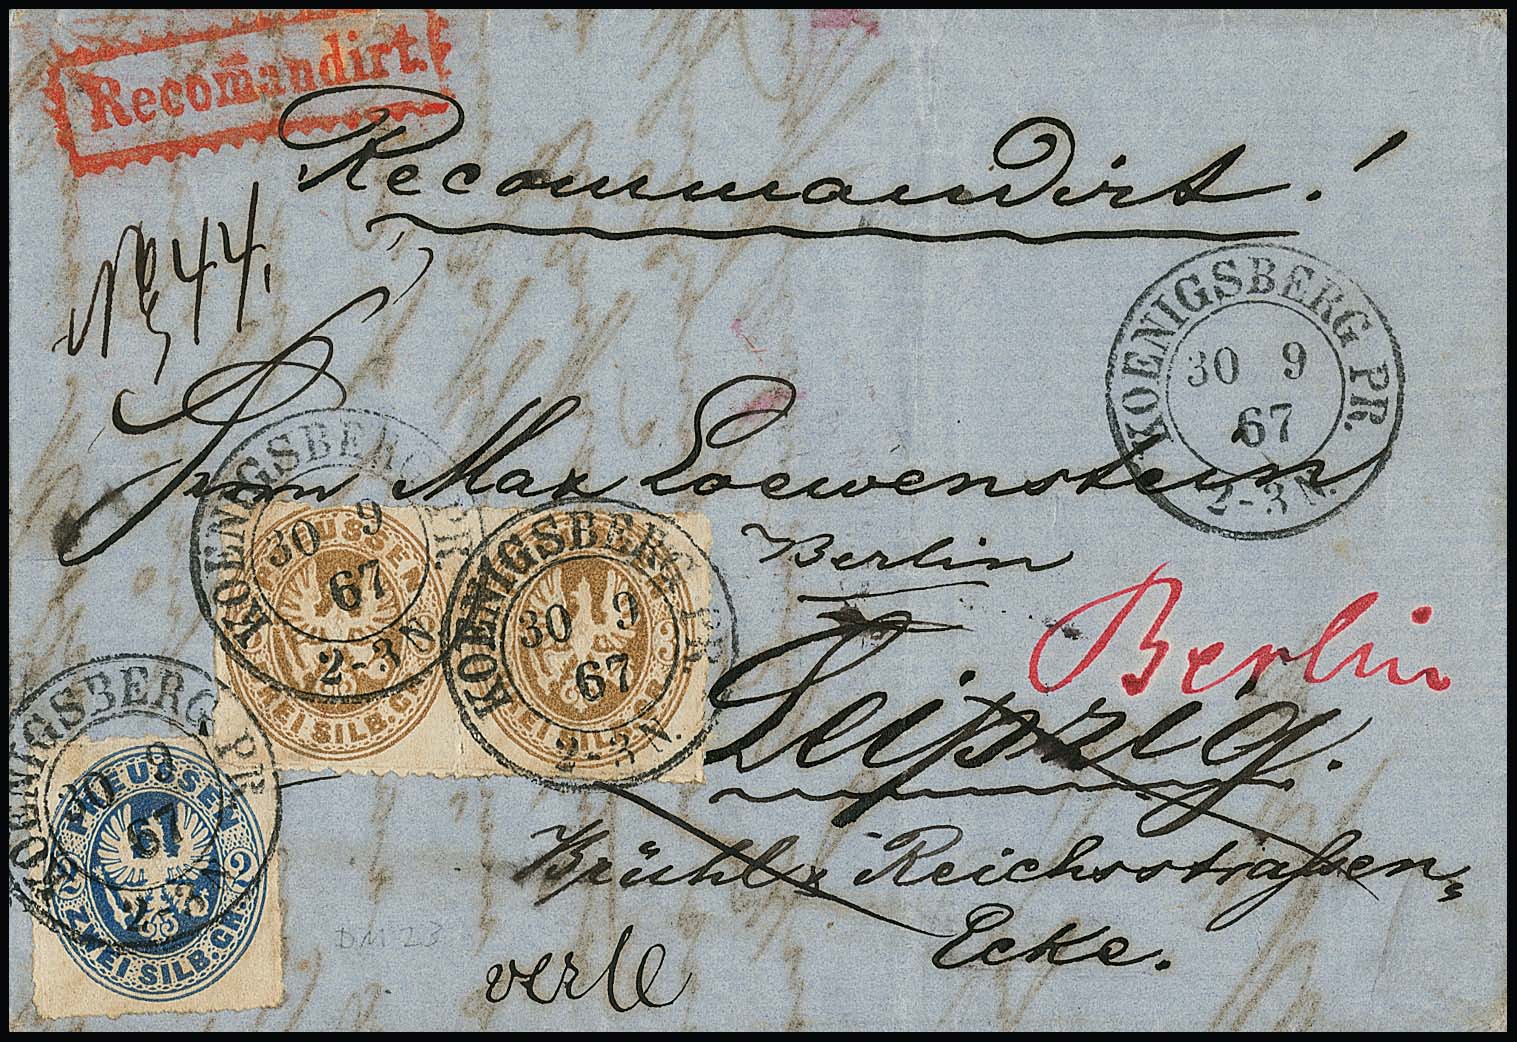 Recomandirt.
Recommandirt!
No 44.
KOENIGSBERG PR.
30 9
67
2-3 N.
Herrn Max Loewenstein
Berlin
Berlin
Leipzig.
Brühl & Reichsstraßen-
Ecke.
KOENIGSBERG PR.
30 9
67
2-3 N.
PREUSSEN
ZWEI SILB. GR.
KOENIGSBERG PR.
30 9
67
2-3 N.
ZWEI SILB. GR.
KOENIGSBERG PR.
30 9
67
2-3
PREUSSEN
2 2
ZWEI SILB. GR.
DM 23